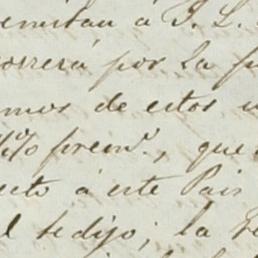 remitan á J. L.
correrá por la
mos de estos
% prem.º, que
ecto á este Pais
l se dijo; la